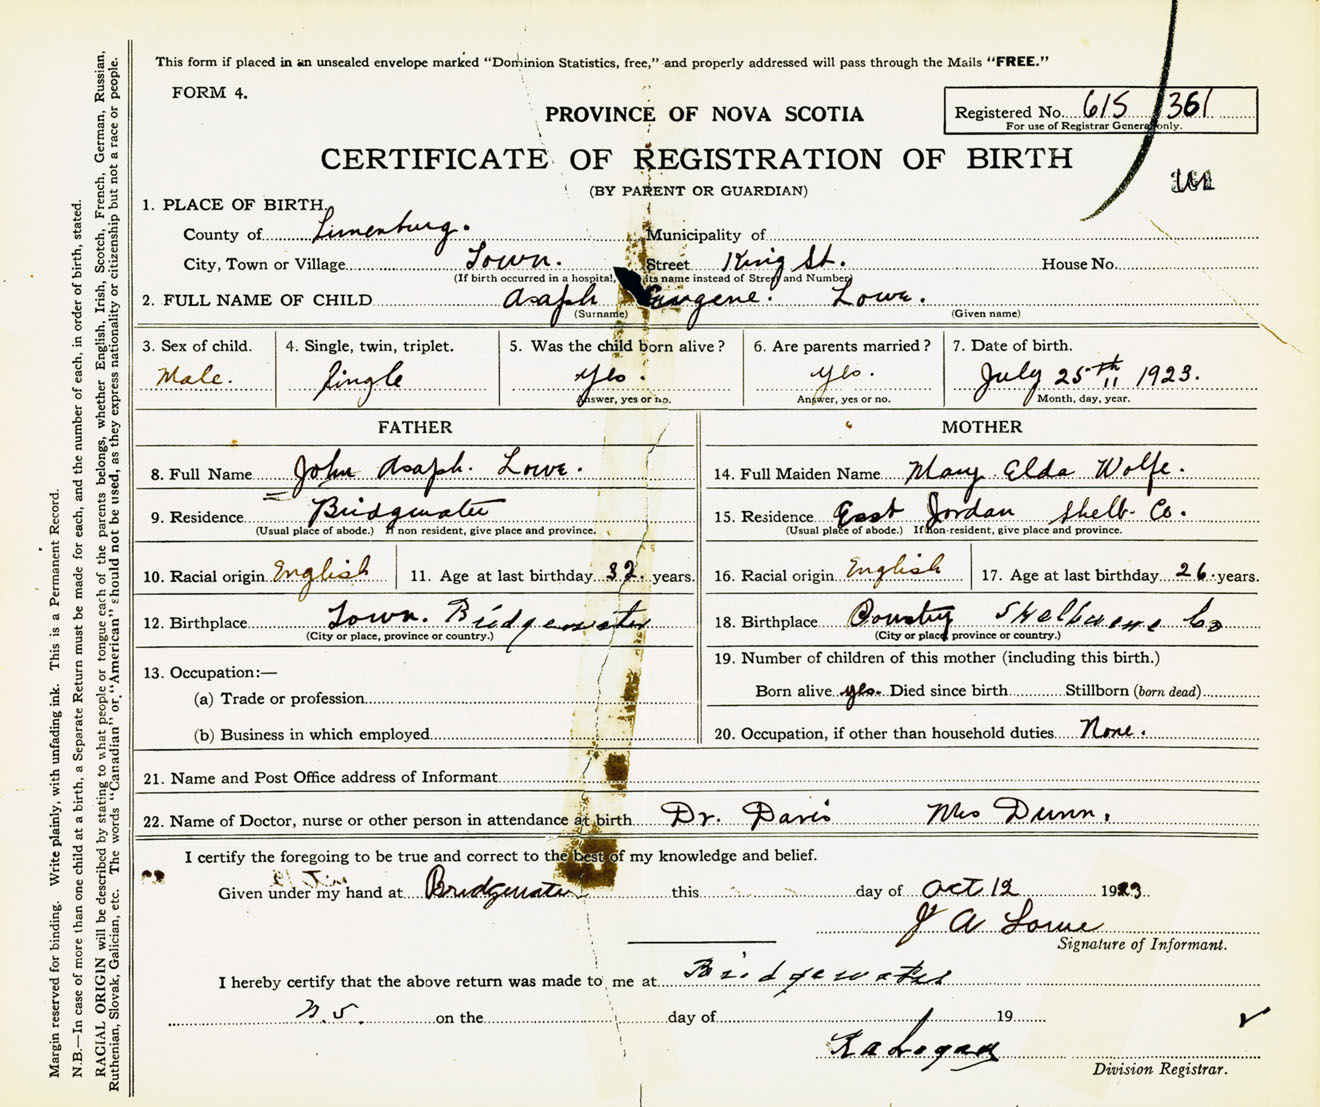 This form if placed in an unsealed envelope marked "Dominion Statistics, free," and properly addressed will pass through the Mails "FREE."
FORM 4.
PROVINCE OF NOVA SCOTIA
Registered No. 615 361
For use of Registrar General only.
CERTIFICATE OF REGISTRATION OF BIRTH
(BY PARENT OR GUARDIAN)
1. PLACE OF BIRTH.
County of Lunenburg. Municipality of
City, Town or Village Town. Street King St. House No.
(If birth occurred in a hospital, its name instead of Street and Number)
2. FULL NAME OF CHILD Asaph Eugene. Lowe.
(Surname) (Given name)
3. Sex of child. 4. Single, twin, triplet. 5. Was the child born alive? 6. Are parents married? 7. Date of birth.
Male. Single Yes. Yes. July 25th 1923.
Answer, yes or no. Answer, yes or no. Month, day, year.
FATHER MOTHER
8. Full Name John Asaph. Lowe. 14. Full Maiden Name Mary Elda Wolfe.
9. Residence Bridgewater 15. Residence East Jordan Shelb. Co.
(Usual place of abode.) If non resident, give place and province. (Usual place of abode.) If non-resident, give place and province.
10. Racial origin English 11. Age at last birthday 32. years. 16. Racial origin English 17. Age at last birthday 26. years.
12. Birthplace Town. Bridgewater 18. Birthplace Country Shelburne Co
(City or place, province or country.) (City or place, province or country.)
13. Occupation:— 19. Number of children of this mother (including this birth.)
(a) Trade or profession Born alive yes. Died since birth Stillborn (born dead)
(b) Business in which employed 20. Occupation, if other than household duties None.
21. Name and Post Office address of Informant
22. Name of Doctor, nurse or other person in attendance at birth Dr. Davis Mrs Dunn.
I certify the foregoing to be true and correct to the best of my knowledge and belief.
Given under my hand at Bridgewater this day of Oct 12 1923
J A Lowe
Signature of Informant.
I hereby certify that the above return was made to me at Bridgewater
N.S. on the day of 19
Logan
Division Registrar.
Margin reserved for binding. Write plainly, with unfading ink. This is a Permanent Record.
N.B.—In case of more than one child at a birth, a Separate Return must be made for each, and the number of each, in order of birth, stated.
RACIAL ORIGIN will be described by stating to what people or tongue each of the parents belongs, whether English, Irish, Scotch, French, German, Russian,
Ruthenian, Slovak, Galician, etc. The words "Canadian" or "American" should not be used, as they express nationality or citizenship but not a race or people.